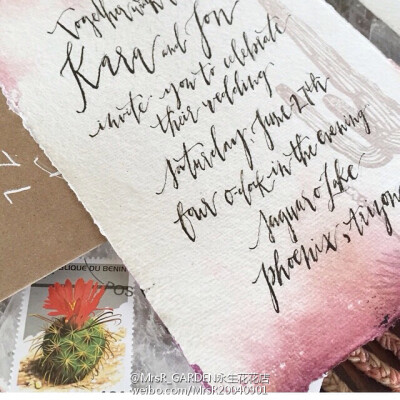 Together with
Kara and Jon
invite you to celebrate
their wedding
saturday, June 27th
four o'clock in the evening
saguaro Lake
phoenix, Arizona
BLIQUE DU BENIN
@MrsR_GARDEN永生花花店
weibo.com/MrsR20040901